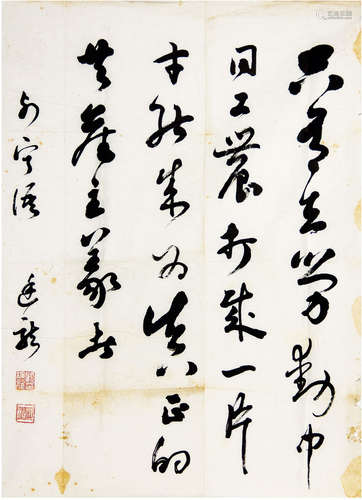 只有在劳动中
同工农打成一片
才能成为真正的
共产主义者
列宁语
廷龙